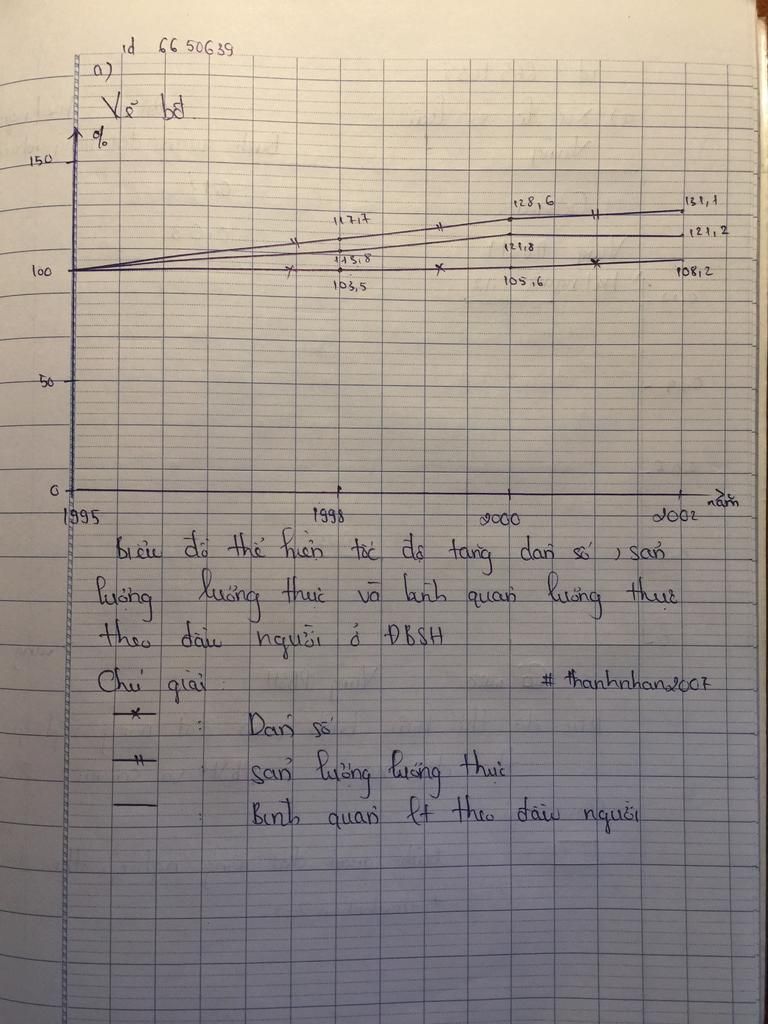 id 6650639
a)
Vẽ bđ
%
150
131,1
128,6
117,7
121,2
121,8
113,8
100
108,2
105,6
103,5
50
0
năm
1995 1998 2000 2002
Biểu đồ thể hiện tốc độ tăng dân số, sản
lượng lương thực và bình quân lương thực
theo đầu người ở ĐBSH
Chú giải: # thanhnhan2007
: Dân số
: sản lượng lương thực
: Bình quân lt theo đầu người